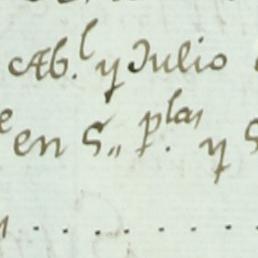 Ab.l y Julio
en S,, p.las y S